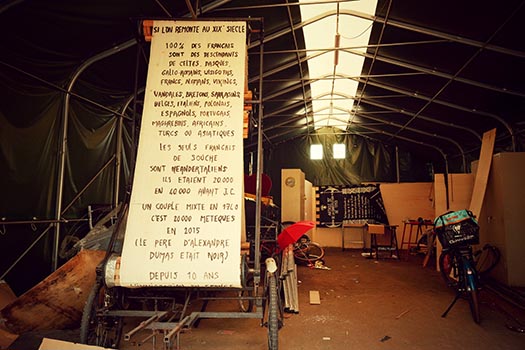 SI L'ON REMONTE AU XIXe SIECLE
100% DES FRANCAIS
SONT DES DESCENDANTS
DE CELTES, BASQUES,
GALLO-ROMAINS, WISIGOTHS,
FRANCS, NORMANDS, VIKINGS,
VANDALES, BRETONS, SARRASINS,
BELGES, ITALIENS, POLONAIS,
ESPAGNOLS, PORTUGAIS,
MAGHREBINS, AFRICAINS,
TURCS OU ASIATIQUES
LES SEULS FRANCAIS
DE SOUCHE
SONT NEANDERTALIENS
ILS ETAIENT 20.000
EN 40.000 AVANT J.C.
UN COUPLE MIXTE EN 1720
C'EST 20000 METEQUES
EN 2015
(LE PERE D'ALEXANDRE
DUMAS ETAIT NOIR)
DEPUIS 10 ANS